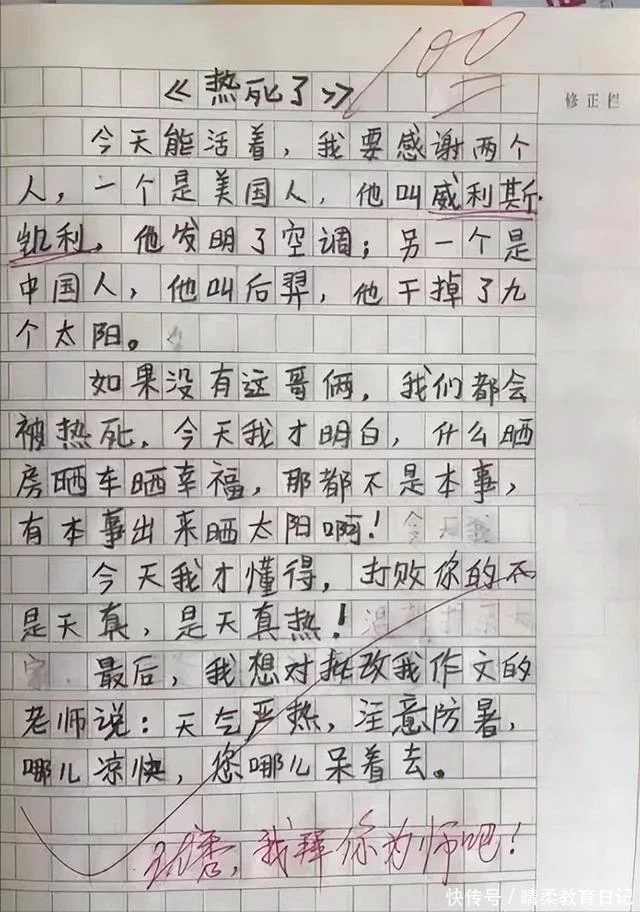 100
《热死了》
修正栏
今天能活着，我要感谢两个
人，一个是美国人，他叫威利斯
凯利，他发明了空调；另一个是
中国人，他叫后羿，他干掉了九
个太阳。
如果没有这哥俩，我们都会
被热死，今天我才明白，什么晒
房晒车晒幸福，那都不是本事，
有本事出来晒太阳啊！
今天我才懂得，打败你的不
是天真，是天真热！
最后，我想对批改我作文的
老师说：天气严热，注意防暑，
哪儿凉快，您哪儿呆着去。
优秀，我拜你为师吧！
快传号／晴柔教育日记